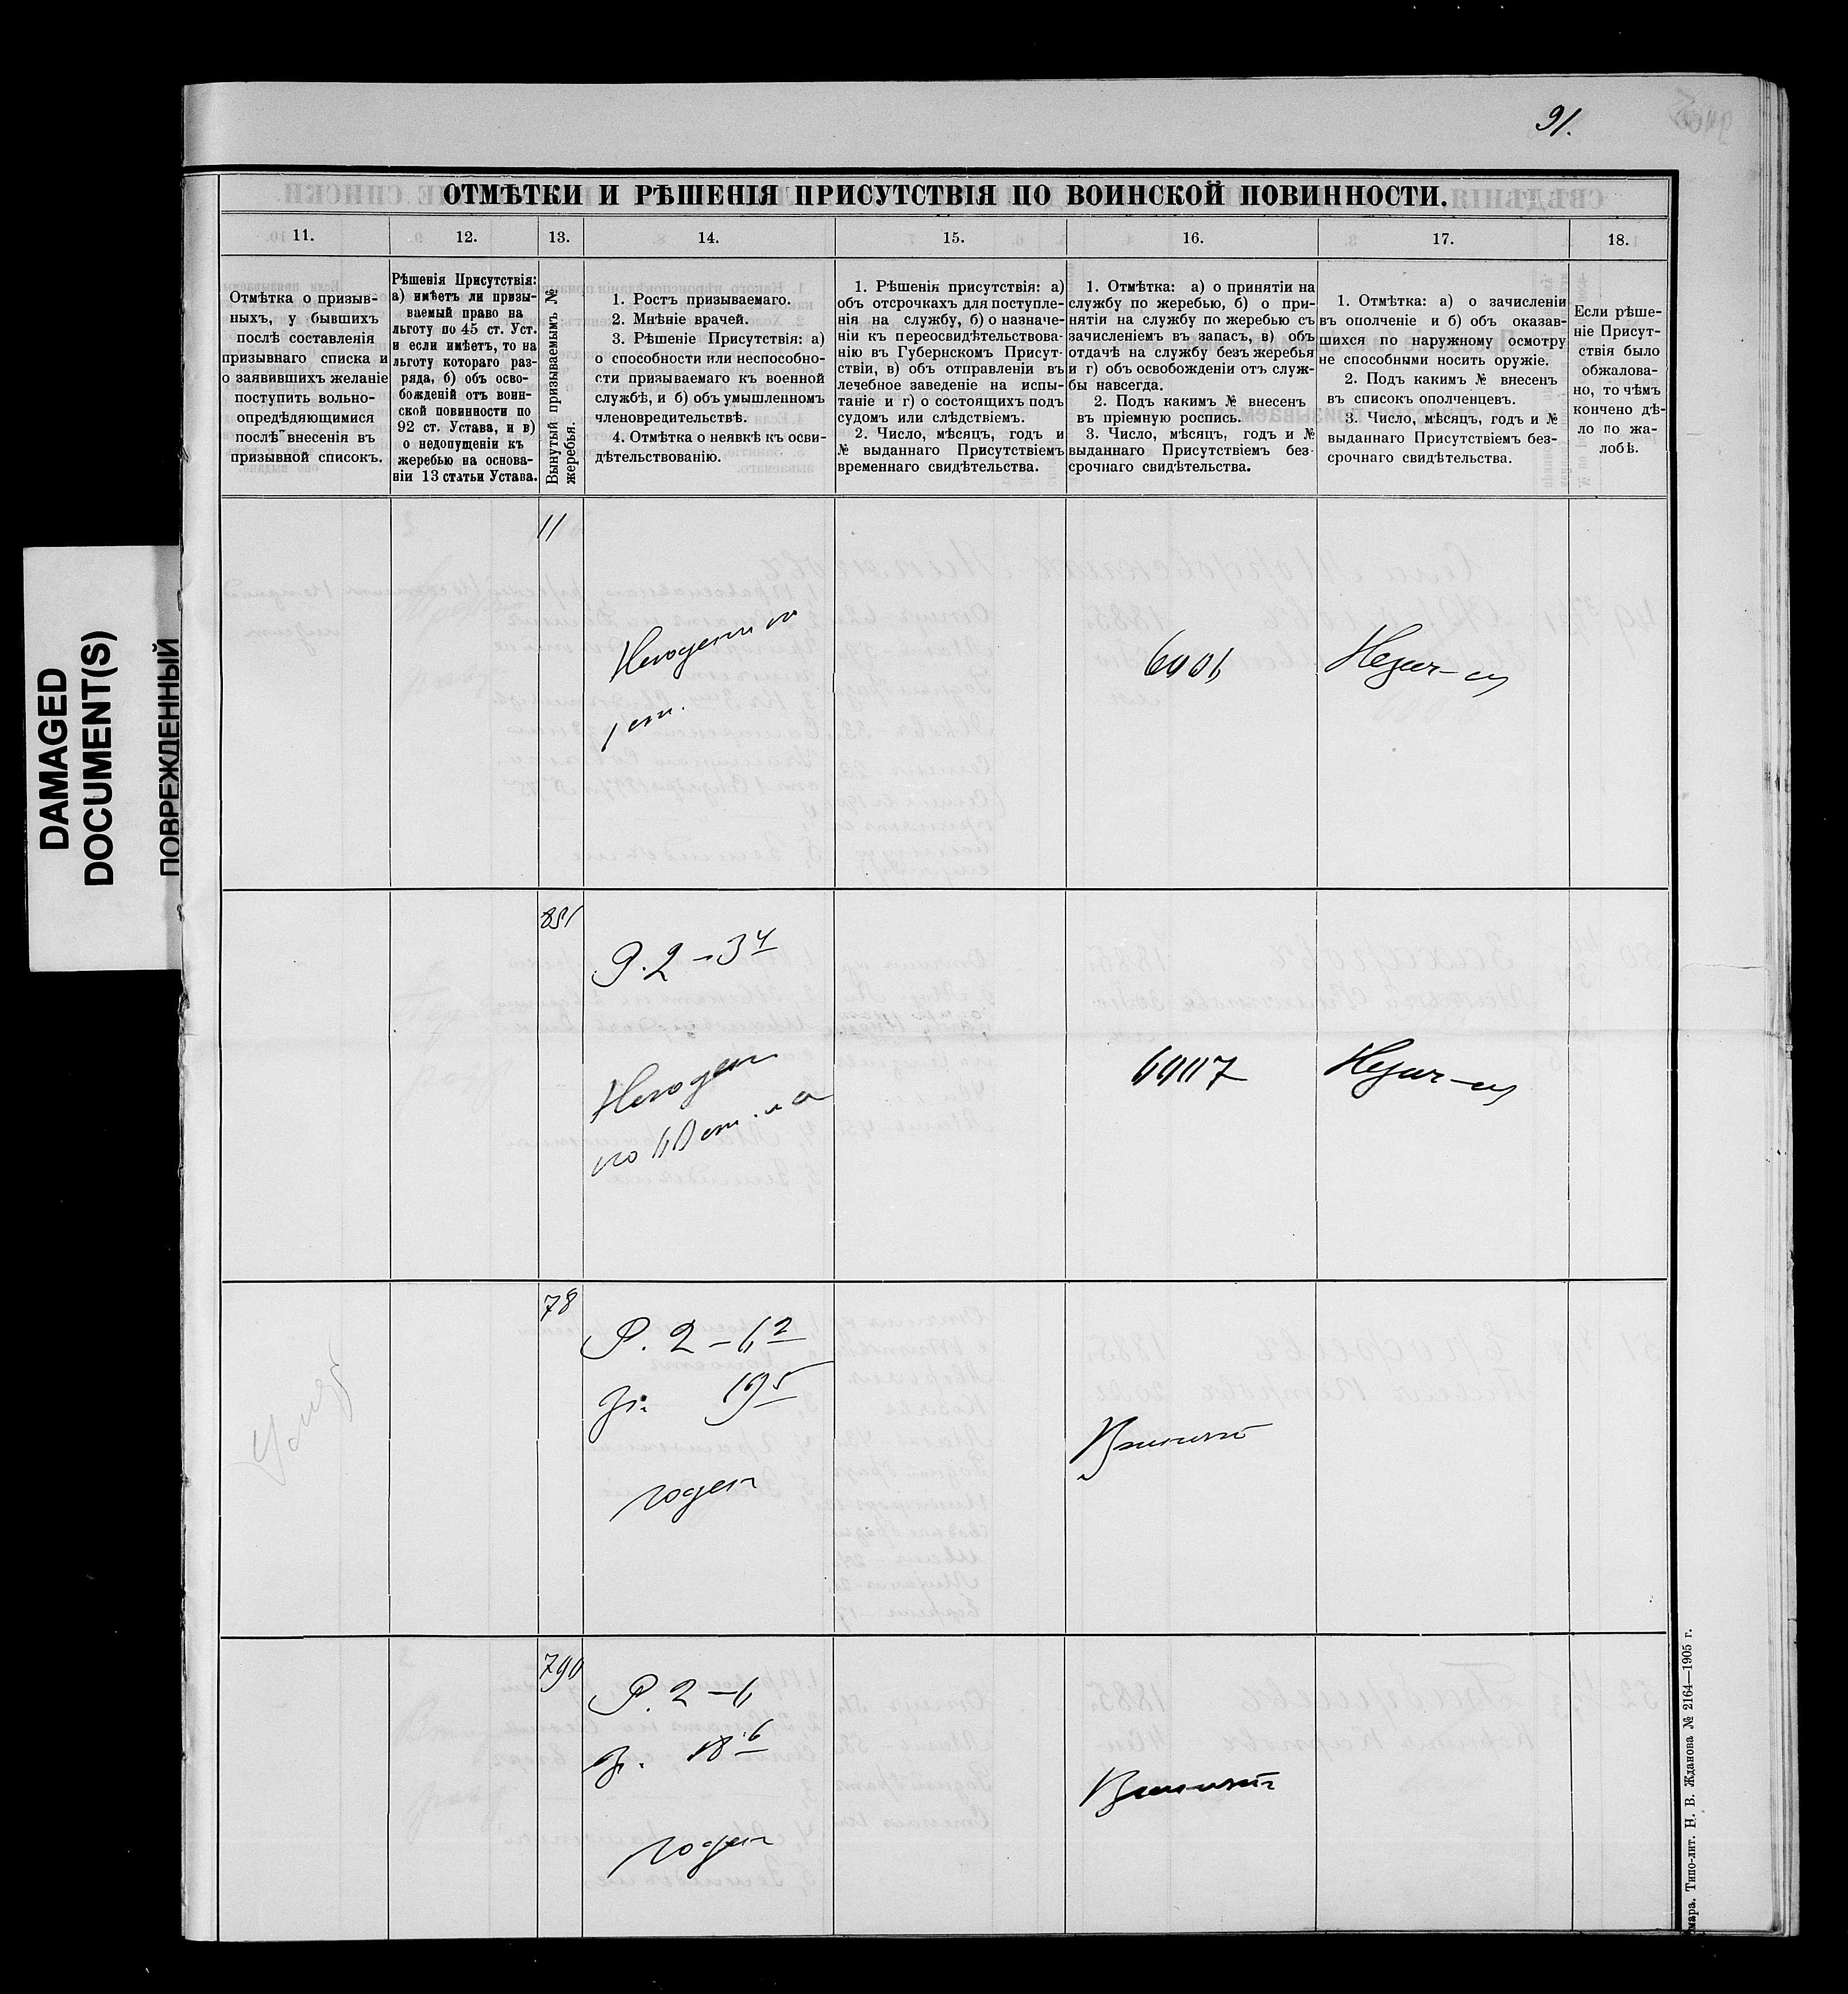 91.
ОТМѢТКИ И РѢШЕНІЯ ПРИСУТСТВІЯ ПО ВОИНСКОЙ ПОВИННОСТИ.
11.
Отмѣтка о призыв-
ныхъ, у бывшихъ
послѣ составленія
призывнаго списка и
о заявившихъ желаніе
поступить вольно-
опредѣляющимися
послѣ внесенія въ
призывной списокъ.
12.
Рѣшенія Присутствія:
а) имѣетъ ли призы-
ваемый право на
льготу по 45 ст. Уст.
и если имѣетъ, то на
льготу котораго раз-
ряда, б) объ осво-
божденій отъ воин-
ской повинности по
92 ст. Устава, и в)
о недопущеніи къ
жеребью на основа-
ніи 13 статьи Устава.
13.
Вынутый призываемымъ №
жеребья.
14.
1. Ростъ призываемаго.
2. Мнѣніе врачей.
3. Рѣшеніе Присутствія: а)
о способности или неспособно-
сти призываемаго къ военной
службѣ, и б) объ умышленномъ
членовредительствѣ.
4. Отмѣтка о неявкѣ къ осви-
дѣтельствованію.
15.
1. Рѣшенія присутствія: а)
объ отсрочкахъ для поступле-
нія на службу, б) о назначе-
ніи къ переосвидѣтельствова-
нію въ Губернскомъ Присут-
ствіи, в) объ отправленіи въ
лечебное заведеніе на испы-
таніе и г) о состоящихъ подъ
судомъ или слѣдствіемъ.
2. Число, мѣсяцъ, годъ и
№ выданнаго Присутствіемъ
временнаго свидѣтельства.
16.
1. Отмѣтка: а) о принятіи на
службу по жеребью, б) о при-
нятіи на службу по жеребью съ
зачисленіемъ въ запасъ, в) объ
отдачѣ на службу безъ жеребья
и г) объ освобожденіи отъ служ-
бы навсегда.
2. Подъ какимъ № внесенъ
въ пріемную роспись.
3. Число, мѣсяцъ, годъ и №
выданнаго Присутствіемъ без-
срочнаго свидѣтельства.
17.
1. Отмѣтка: а) о зачисленіи
въ ополченіе и б) объ оказав-
шихся по наружному осмотру
не способными носить оружіе.
2. Подъ какимъ № внесенъ
въ списокъ ополченцевъ.
3. Число, мѣсяцъ, годъ и №
выданнаго Присутствіемъ без-
срочнаго свидѣтельства.
18.
Если рѣше-
ніе Присут-
ствія было
обжалова-
но, то чѣмъ
кончено дѣ-
ло по жа-
лобѣ.
11
851
Р. 2-3 4
Негоденъ
78
Р. 2-
годенъ
790
Р. 2-
годенъ
DAMAGED
DOCUMENT(S)
ПОВРЕЖДЕННЫЙ
мара. Типо-лит. Н. В. Жданова № 2164—1905 г.